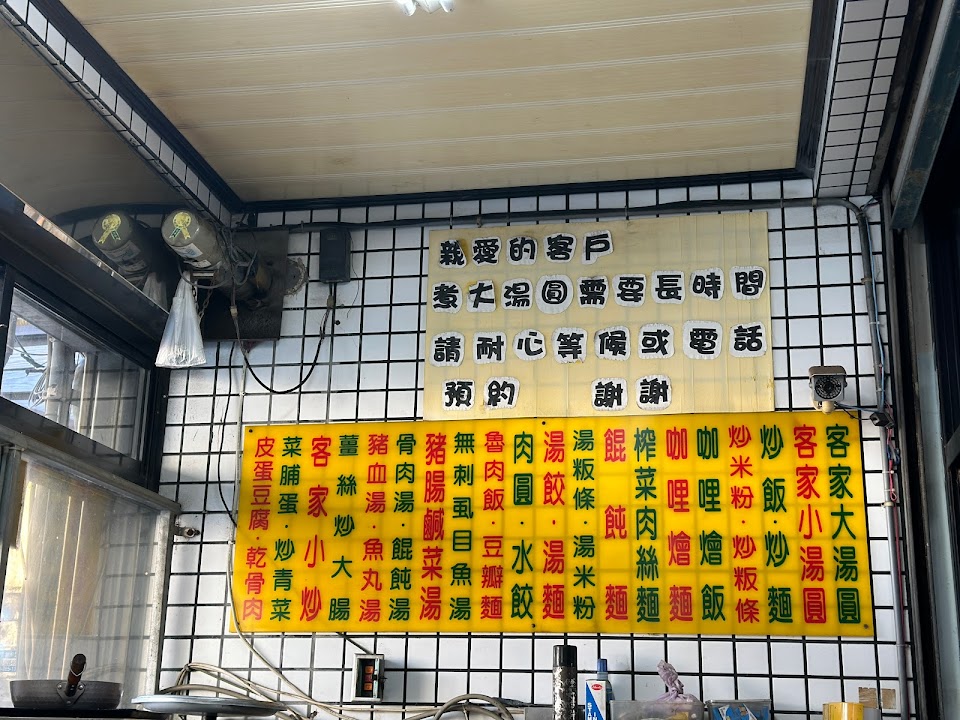 親愛的客戶
煮大湯圓需要長時間
請耐心等候或電話
預約 謝謝
客家大湯圓
客家小湯圓
炒飯·炒麵
炒米粉·炒粄條
咖哩燴飯
咖哩燴麵
榨菜肉絲麵
餛飩麵
湯粄條·湯米粉
湯餃·湯麵
肉圓·水餃
魯肉飯·豆瓣麵
無刺虱目魚湯
豬腸鹹菜湯
骨肉湯·餛飩湯
豬血湯·魚丸湯
薑絲炒大腸
客家小炒
菜脯蛋·炒青菜
皮蛋豆腐·乾骨肉